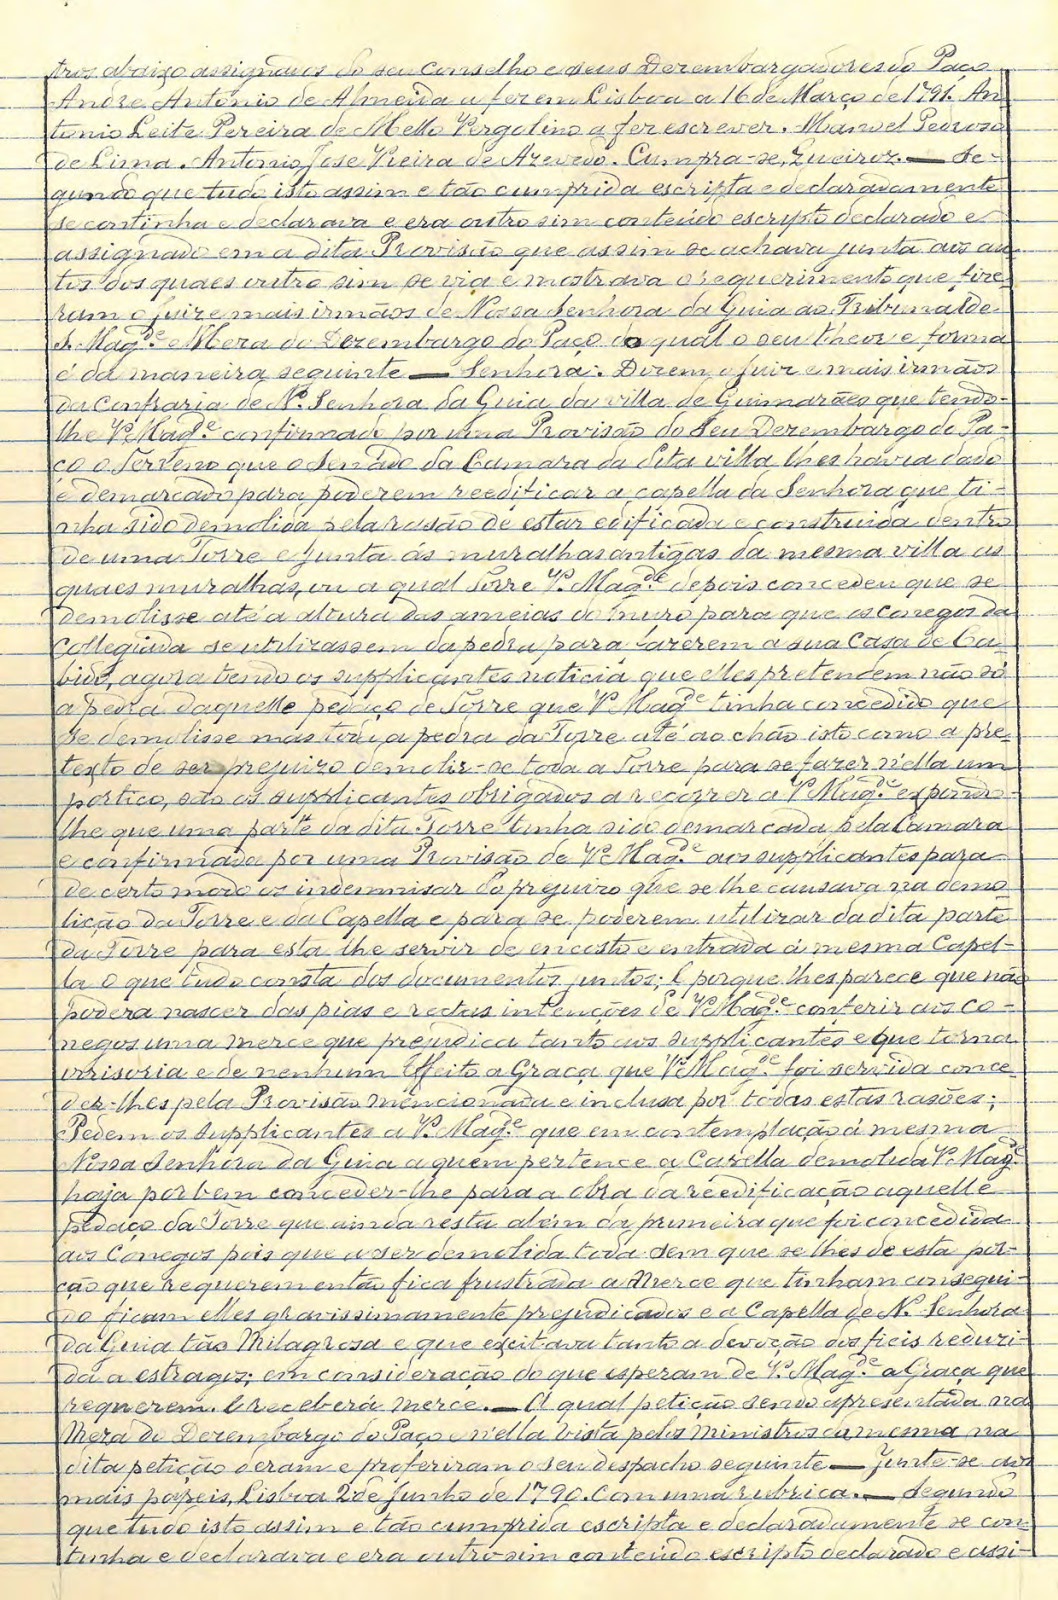 tros abaixo assignados do seu conselho e seus Dezembargadores do Paço
Andre Antonio de Almeida a fez em Lisboa a 16 de Março de 1791. An-
tonio Leite Pereira de Mello Vergolino a fez escrever. Manoel Pedroso
de Lima. Antonio Jose Vieira de Azevedo. Cumpra-se, Queiroz. — Se-
gundo que tudo isto assim e tão cumprida escripta e declaradamente
se continha e declarava e era outro sim conteudo escripto declarado e
assignado em a dita Provisão que assim se achava junta aos au-
tos dos quaes outro sim se via e mostrava o requerimento que fize-
ram o Juiz e mais irmãos de Nossa Senhora da Guia ao Tribunal de
S. Mag.de e Meza do Dezembargo do Paço do qual o seu theor e forma
é da maneira seguinte — Senhora: Dizem o Juiz e mais irmãos
da Confraria de N. Senhora da Guia da villa de Guimarães que tendo-
lhe V. Mag.e confirmado por uma Provisão do Seu Dezembargo do Pa-
ço o Terreno que o Senado da Camara da dita villa lhes havia dado
e demarcado para poderem reedificar a capella da Senhora que ti-
nha sido demolida pela rasão de estar edificada e construida dentro
de uma Torre e junta ás muralhas antigas da mesma villa as
quaes muralhas, ou a qual Torre V. Mag.de depois concedeu que se
demolisse até a altura das ameias do muro para que os conegos da
Collegiada se utilizassem da pedra para fazerem a sua Casa de Ca-
bido, agora tendo os supplicantes noticia que elles pretendem não só
a pedra daquelle pedaço de Torre que V. Mag.de tinha concedido que
se demolisse mas toda a pedra da Torre até ao chão isto como a pre-
texto de ser prejuizo demolir-se toda a Torre para se fazer n'ella um
portico, são os supplicantes obrigados a recorrer a V. Mag.de expondo-
lhe que uma parte da dita Torre tinha sido demarcada pela Camara
e confirmada por uma Provisão de V. Mag.e aos supplicantes para
de certo modo os indemnisar do prejuizo que se lhe causava na demo-
lição da Torre e da Capella e para se poderem utilizar da dita parte
da Torre para esta lhe servir de encosto e entrada á mesma Capel-
la o que tudo consta dos documentos juntos; E porque lhes parece que não
poderá nascer das pias e rectas intenções de V. Mag.de conferir aos co-
negos uma merce que prejudica tanto aos supplicantes e que torna
irrisoria e de nenhum Effeito a Graça que V. Mag.de foi servida conce-
der-lhes pela Provisão mencionada e inclusa por todas estas rasões;
Pedem os supplicantes a V. Mag.e que em contemplação á mesma
Nossa Senhora da Guia a quem pertence a Capella demolida V. Mag.e
haja por bem conceder-lhe para a obra da reedificação aquelle
pedaço da Torre que ainda resta alem da primeira que foi concedida
aos Conegos pois que a ser demolida toda sem que se lhes de esta por-
ção que requerem então fica frustrada a Merce que tinham consegui-
do ficam elles gravissimamente prejudicados e a Capella de N. Senhora
da Guia tão Milagrosa e que excitava tanto a devoção dos fieis reduzi-
da a estragos; em consideração do que esperam de V. Mag.de a Graça que
requerem. E receberá merce. — A qual petição sendo apresentada na
Meza do Dezembargo do Paço e n'ella vista pelos Ministros da mesma na
dita petição deram e proferiram o seu despacho seguinte — Junte-se aos
mais papeis, Lisboa 2 de Junho de 1790. Com uma rubrica. — Segundo
que tudo isto assim e tão cumprida escripta e declaradamente se con-
tinha e declarava e era outro sim conteúdo escripto declarado e assi-